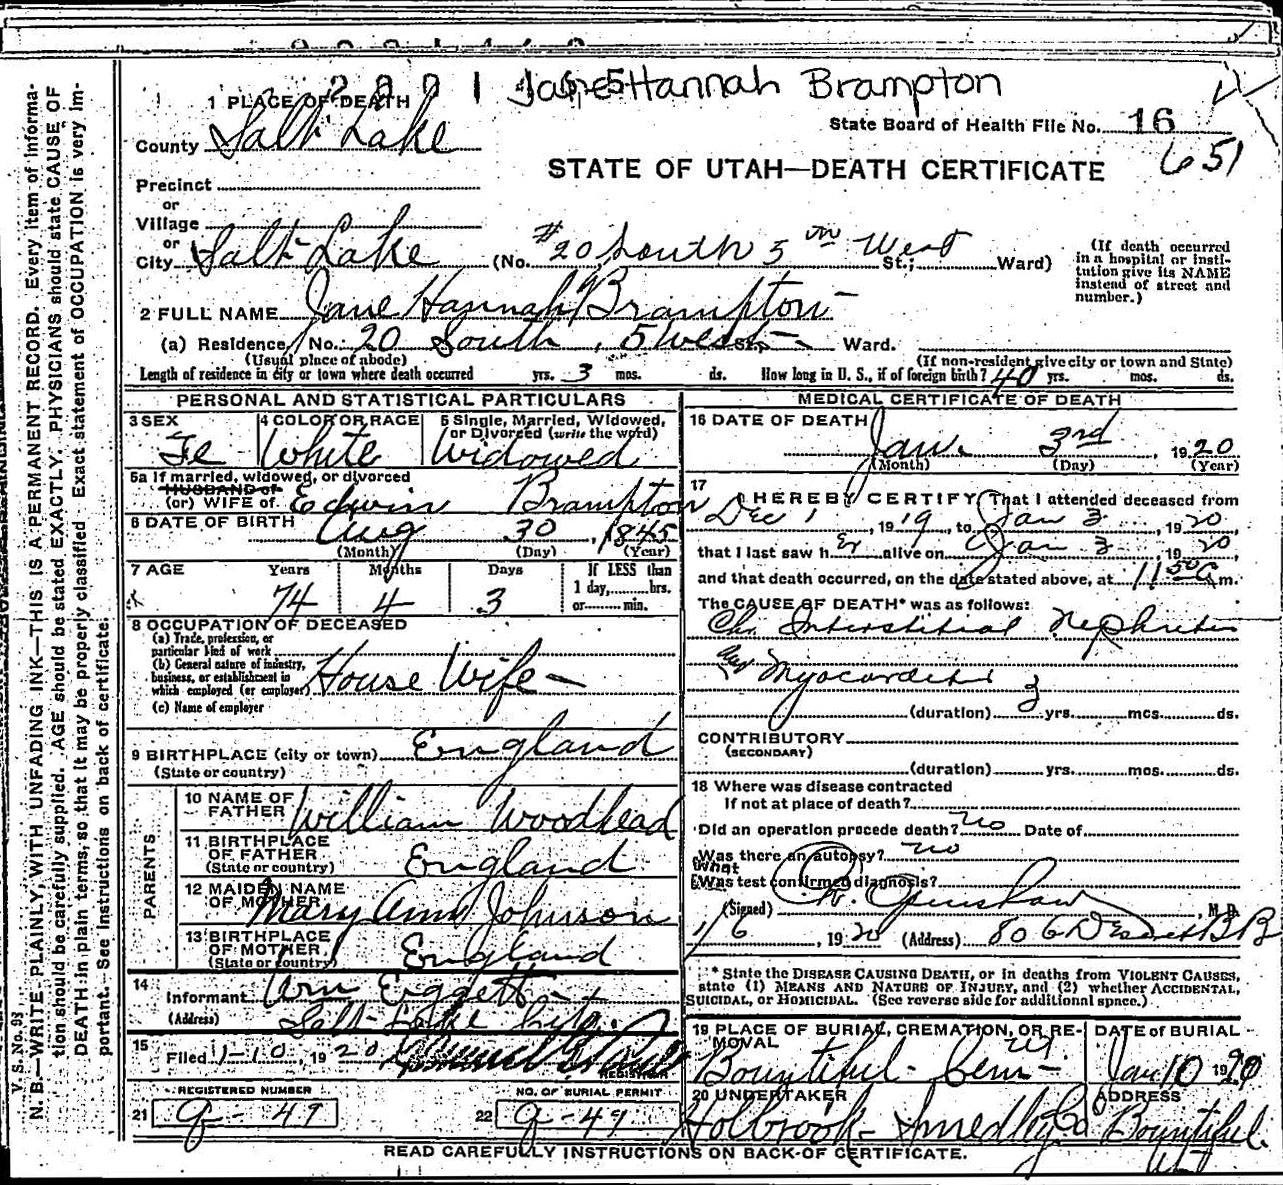 Jane Hannah Brampton
1 PLACE OF DEATH
State Board of Health File No. 16
651
County Salt Lake
STATE OF UTAH—DEATH CERTIFICATE
Precinct
or
Village
or
City Salt Lake (No. #20 South 5th West St.; Ward)
(If death occurred in a hospital or insti-
tution give its NAME
instead of street and
number.)
2 FULL NAME Jane Hannah Brampton
(a) Residence, No. 20 South, 5 West St., Ward.
(Usual place of abode) (If non-resident give city or town and State)
Length of residence in city or town where death occurred yrs. 3 mos. ds. How long in U. S., if of foreign birth? 40 yrs. mos. ds.
PERSONAL AND STATISTICAL PARTICULARS
3 SEX Fe
4 COLOR OR RACE White
5 Single, Married, Widowed, or Divorced (write the word) Widowed
5a If married, widowed, or divorced
HUSBAND of
(or) WIFE of Edwin Brampton
6 DATE OF BIRTH Aug 30, 1845
(Month) (Day) (Year)
7 AGE Years Months Days If LESS than
1 day, hrs.
or min.
74 4 3
8 OCCUPATION OF DECEASED
(a) Trade, profession, or
particular kind of work
(b) General nature of industry,
business, or establishment in
which employed (or employer) House Wife
(c) Name of employer
9 BIRTHPLACE (city or town) England
(State or country)
PARENTS
10 NAME OF FATHER William Woodhead
11 BIRTHPLACE OF FATHER England
(State or country)
12 MAIDEN NAME OF MOTHER Mary Ann Johnson
13 BIRTHPLACE OF MOTHER England
(State or country)
14 Informant Wm Eggett
(Address) Salt Lake City
15 Filed 1-10, 1920
REGISTRAR
REGISTERED NUMBER
21 g-49
NO. OF BURIAL PERMIT
22 g-49
MEDICAL CERTIFICATE OF DEATH
16 DATE OF DEATH
Jan. 3rd 1920
(Month) (Day) (Year)
17 I HEREBY CERTIFY, That I attended deceased from
Dec 1, 1919, to Jan 3, 1920
that I last saw her alive on Jan 3, 1920,
and that death occurred, on the date stated above, at 11 50 a m.
The CAUSE OF DEATH* was as follows:
Chr Interstitial Nephritis
and Myocarditis
(duration) 3 yrs. mos. ds.
CONTRIBUTORY
(SECONDARY)
(duration) yrs. mos. ds.
18 Where was disease contracted
If not at place of death?
Did an operation precede death? no Date of
Was there an autopsy? no
What test confirmed diagnosis?
(Signed) , M.D.
1/6, 1920 (Address) 806 Deseret B B
* State the DISEASE CAUSING DEATH, or in deaths from VIOLENT CAUSES,
state (1) MEANS AND NATURE OF INJURY, and (2) whether ACCIDENTAL,
SUICIDAL, or HOMICIDAL. (See reverse side for additional space.)
19 PLACE OF BURIAL, CREMATION, OR RE-
MOVAL
Bountiful Cem
DATE of BURIAL
Jan 10 1920
20 UNDERTAKER
Holbrook-Smedley Co
ADDRESS
Bountiful Ut
READ CAREFULLY INSTRUCTIONS ON BACK OF CERTIFICATE.
V. S. No. 93
N. B.—WRITE PLAINLY, WITH UNFADING INK—THIS IS A PERMANENT RECORD. Every item of informa-
tion should be carefully supplied. AGE should be stated EXACTLY. PHYSICIANS should state CAUSE OF
DEATH in plain terms, so that it may be properly classified. Exact statement of OCCUPATION is very im-
portant. See instructions on back of certificate.